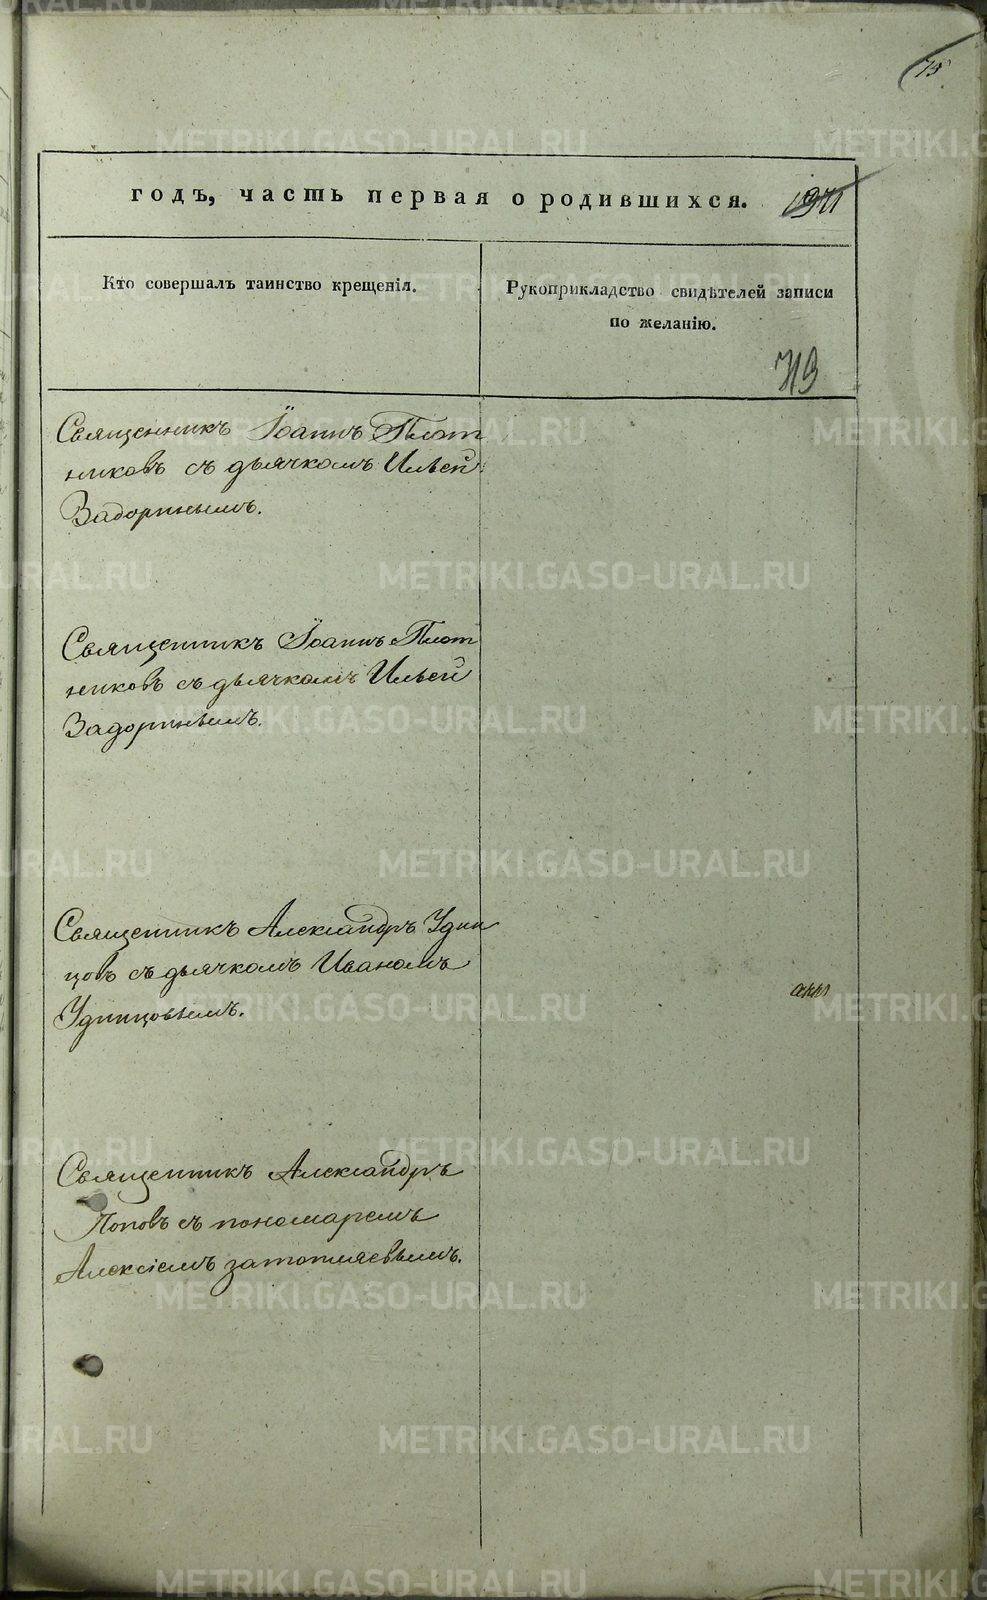 75
годъ, часть первая о родившихся.
Кто совершалъ таинство крещенія.
Рукоприкладство свидѣтелей записи
по желанію.
319
Священникъ Іоаннъ Плот
никовъ съ дьячкомъ Ильей
Задоринымъ.
Священникъ Іоаннъ Плот
никовъ съ дьячкомъ Ильей
Задоринымъ.
Священникъ Александръ Удин
цовъ съ дьячкомъ Иваномъ
Удинцовымъ.
Священникъ Александръ
Поповъ съ пономаремъ
Алексіемъ
METRIKI.GASO-URAL.RU